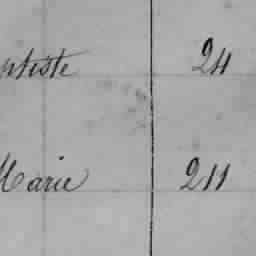 ptiste 24
Marie 211